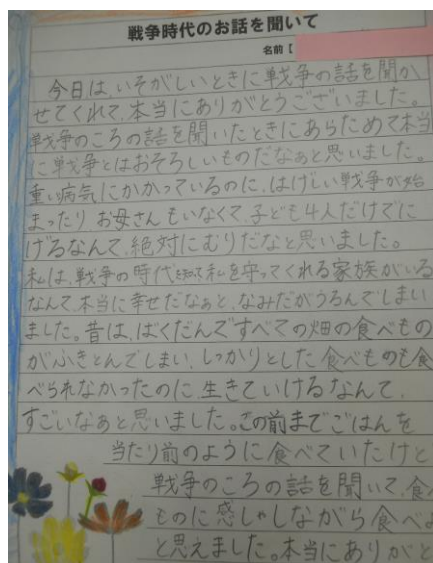 戦争時代のお話を聞いて
名前[
今日は、いそがしいときに戦争の話を聞か
せてくれて、本当にありがとうございました。
戦争のころの話を聞いたときにあらためて本当
に戦争とはおそろしいものだなぁと思いました。
重い病気にかかっているのに、はげしい戦争が始
まったり お母さんもいなくて、子ども4人だけでに
げるなんて、絶対にむりだなと思いました。
私は、戦争の時代 私を守ってくれる家族がいる
なんて、本当に幸せだなぁと、なみだがうるんでしまい
ました。昔は、ばくだんですべての畑の食べもの
がふきとんでしまい、しっかりとした食べものも食
べられなかったのに、生きていけるなんて、
すごいなぁと思いました。この前までごはんを
当たり前のように食べていたけど
戦争のころの話を聞いて、食べ
ものに感しゃしながら食べよ
と思えました。本当にありがと